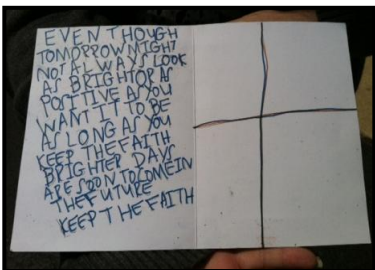 EVEN THOUGH
TOMORROW MIGHT
NOT ALWAYS LOOK
AS BRIGHT OR AS
POSITIVE AS YOU
WANT IT TO BE
AS LONG AS YOU
KEEP THE FAITH
BRIGHTER DAYS
ARE SOON TO
THE FUTURE
KEEP THE FAITH